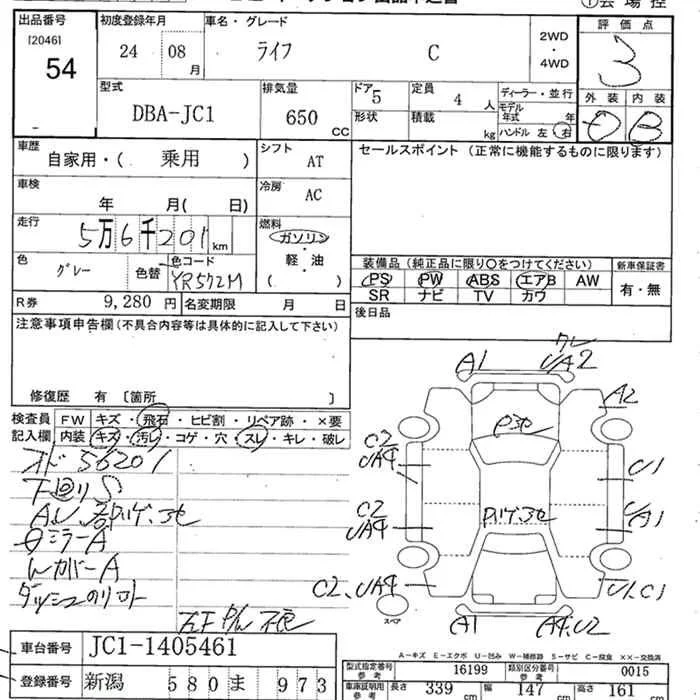 出品番号 初度登録年月 車名・グレード 評価点
[2046]
54
24 08 月 ライフ C 2WD ・ 4WD 3
型式 排気量 ドア 5 定員 4 人 ディーラー・並行 外装 内装
DBA-JC1 650 CC 形状 積載 kg モデル年式 年 B
ハンドル 左 右
車歴 自家用・( 乗用 ) シフト AT セールスポイント (正常に機能するものに限ります)
車検 年 月( 日) 冷房 AC
走行 5万6千201 km 燃料 ガソリン ・ 軽・油 ( )
色 グレー 色替 色コード YR572M
装備品 (純正品に限り○をつけてください) 新車保証書
PS PW ABS エアB AW 有・無
SR ナビ TV カワ
R券 9,280 円 名変期限 月 日 後日品
注意事項申告欄 (不具合内容等は具体的に記入して下さい)
修復歴 有 [箇所 ]
検査員 記入欄 FW キズ・飛石・ヒビ割・リペア跡・×要
内装 キズ・汚レ・コゲ・穴・スレ・キレ・破レ
オド 56201
下回りS
ミラーA
カバーA
A1 UA2
A2
C2 UA4 U1
C2 UA4 UA1
C2、UA4 U1、C1
A1 A4、U2
スペア
A-キズ E-エクボ U-凹み W-補修跡 S-サビ C-腐食 XX-交換済
車台番号 JC1-1405461
登録番号 新潟 580 ま 973
型式指定番号 参考 16199 類別区分番号 参考 0015
車庫証明用 参考 長さ 339 cm 幅 147 cm 高さ 161 cm